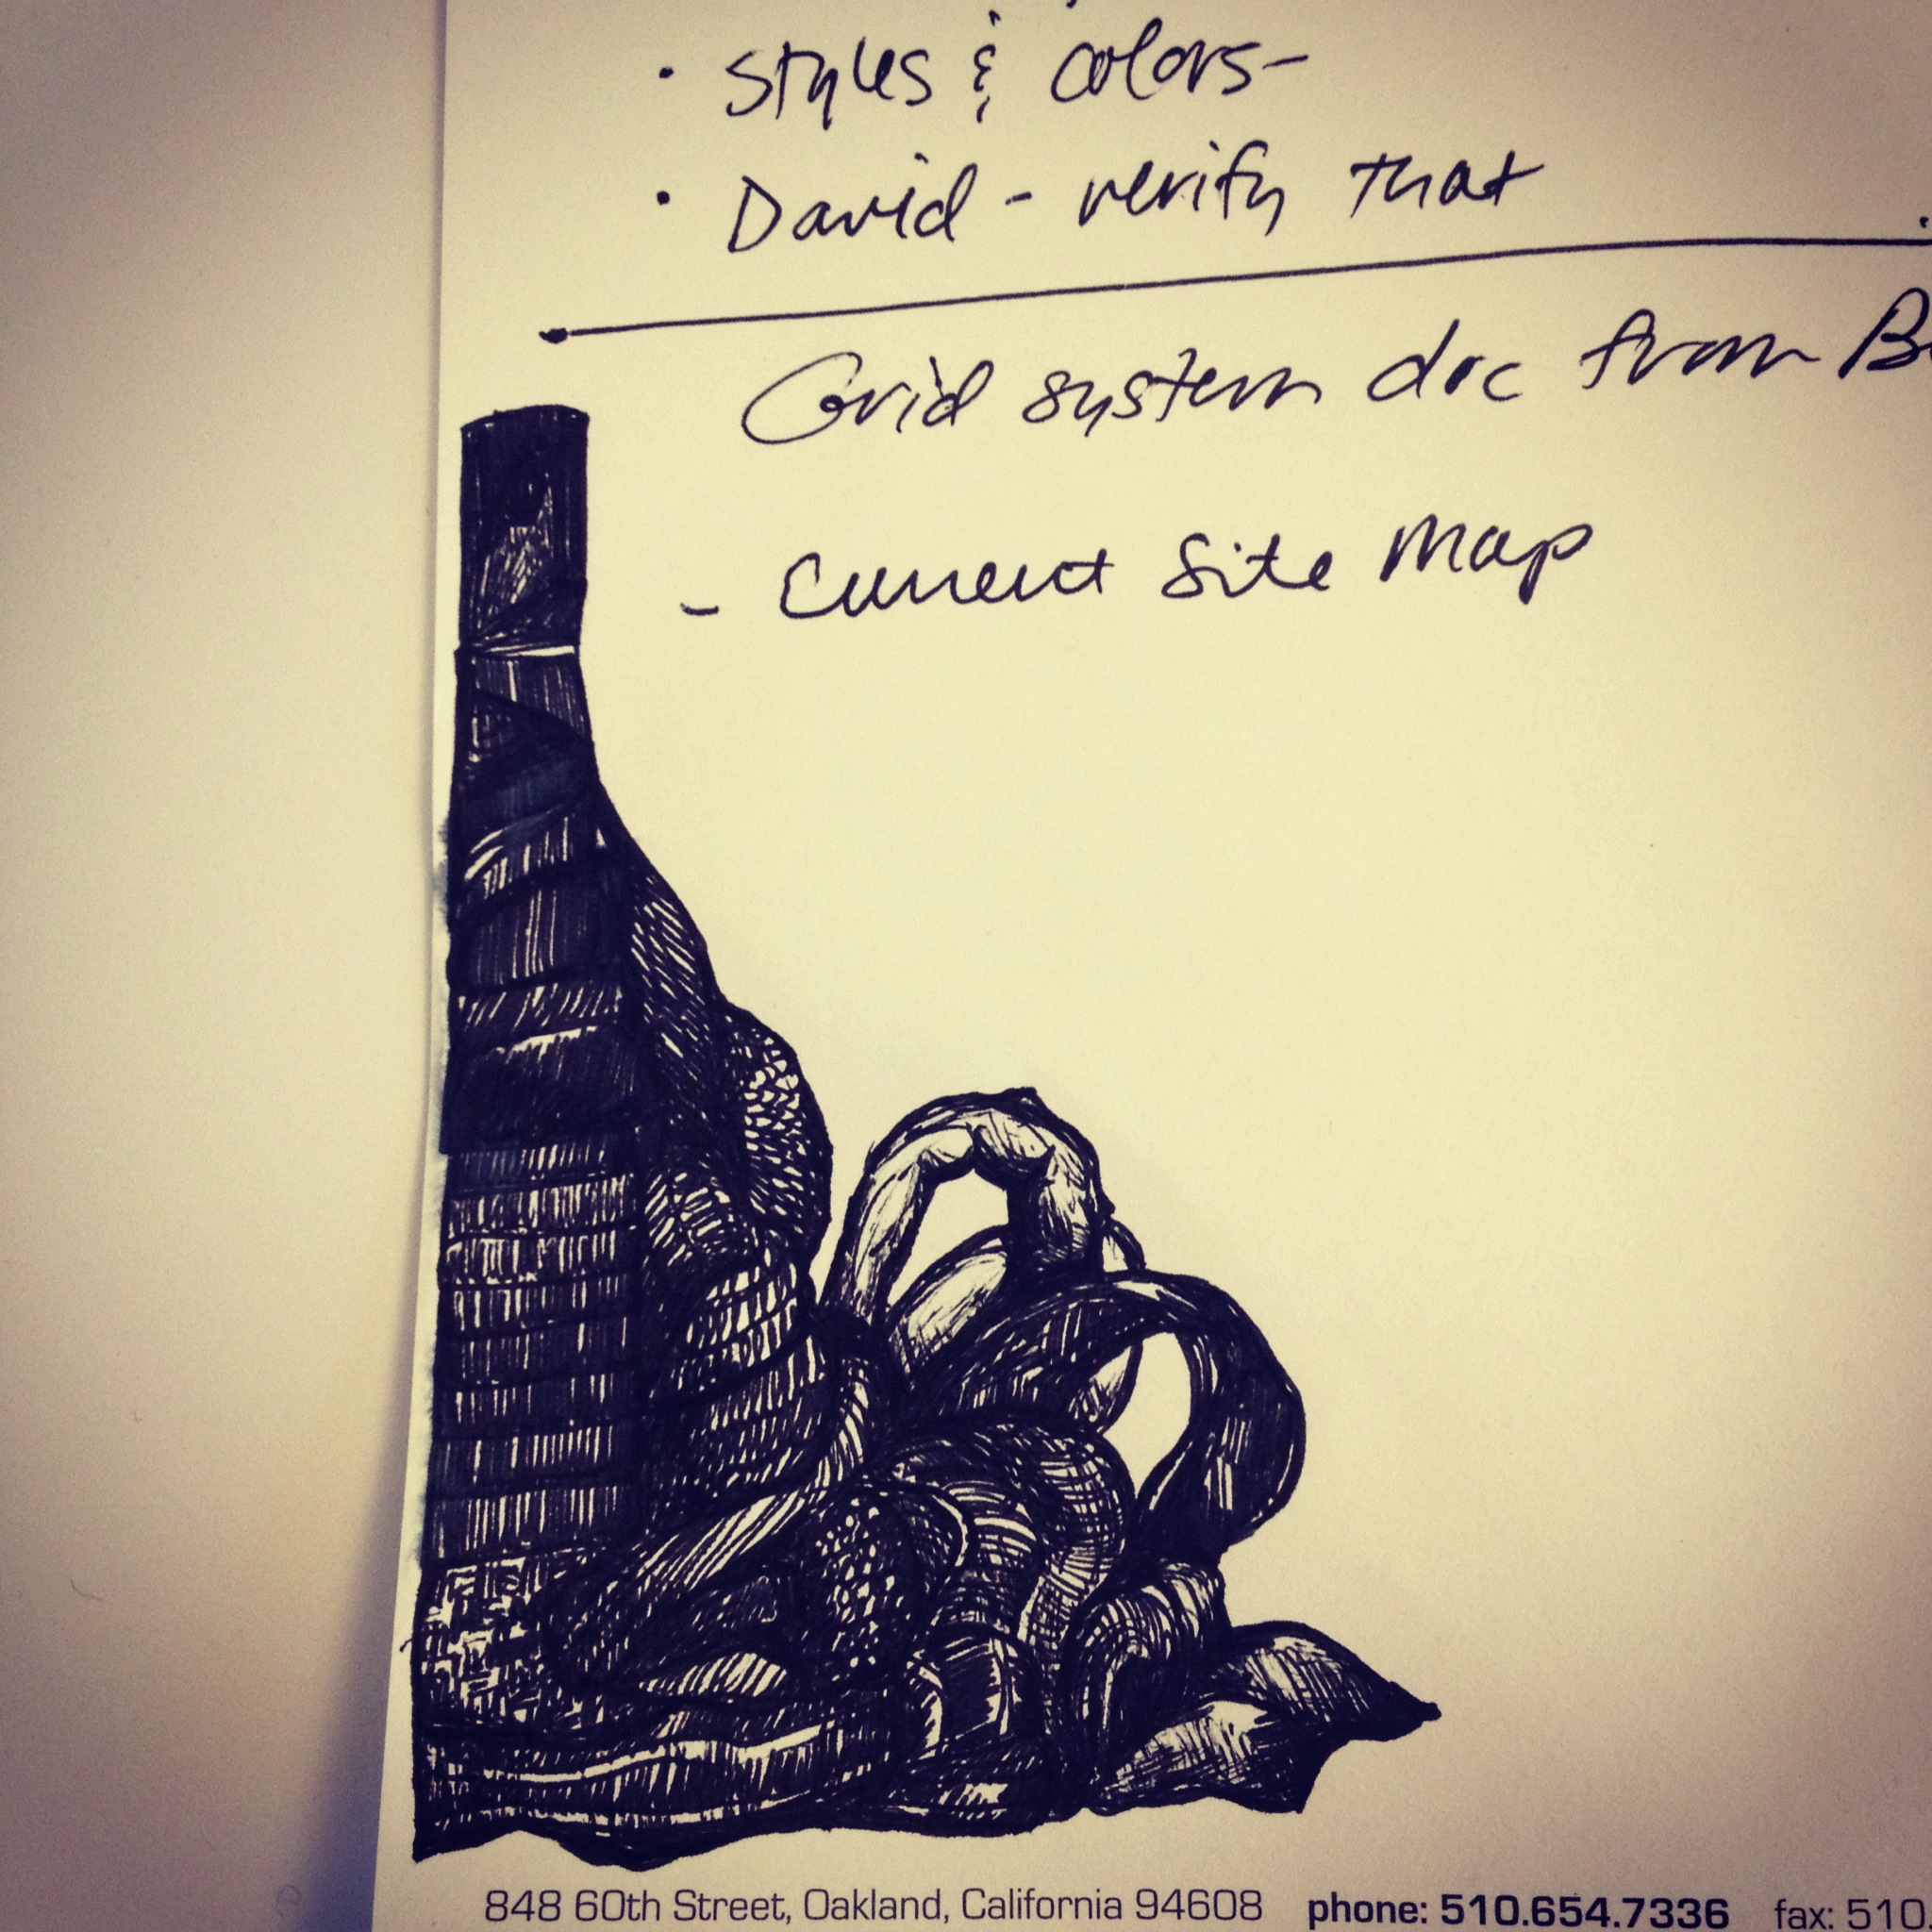 • Styles & colors-
• David - verify that
Grid system doc from
- Current Site Map
848 60th Street, Oakland, California 94608 phone: 510.654.7336 fax: 510